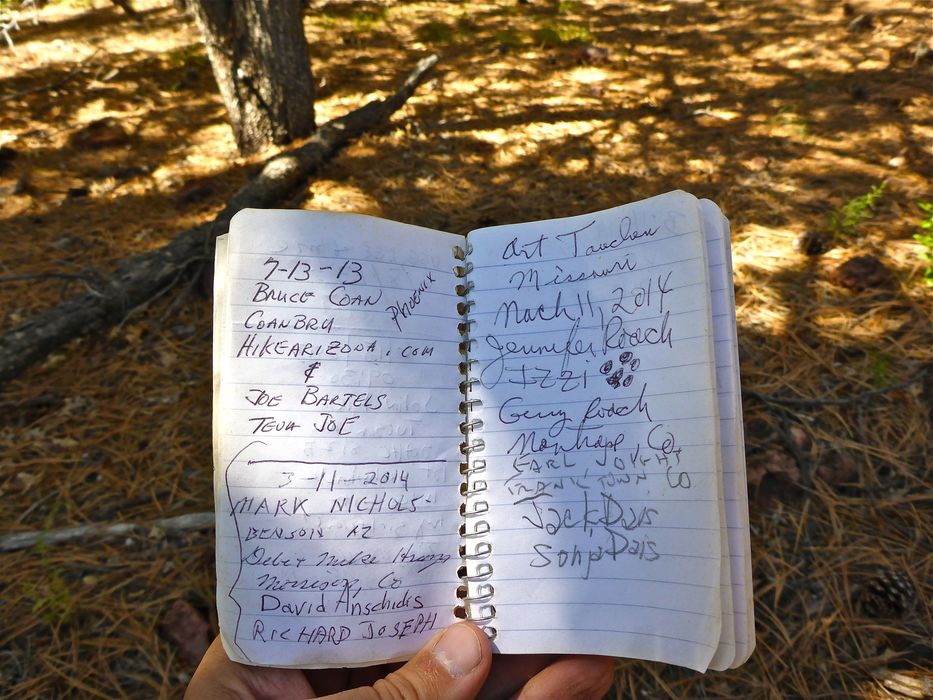 7-13-13
BRUCE COAN
PHOENIX
COANBRU
HIKEARIZONA.COM
&
JOE BARTELS
TEVA JOE
3-11-2014
MARK NICHOLS
BENSON AZ
Deb + Mike
Morrison, Co
David Anschicks
RICHARD JOSEPH
Art Tauchen
Missouri
March 11, 2014
Jennifer Roach
IZZI
Gerry Roach
Montrose, Co
EARL
FRANKTOWN CO
Jack Dais
Sonja Dais